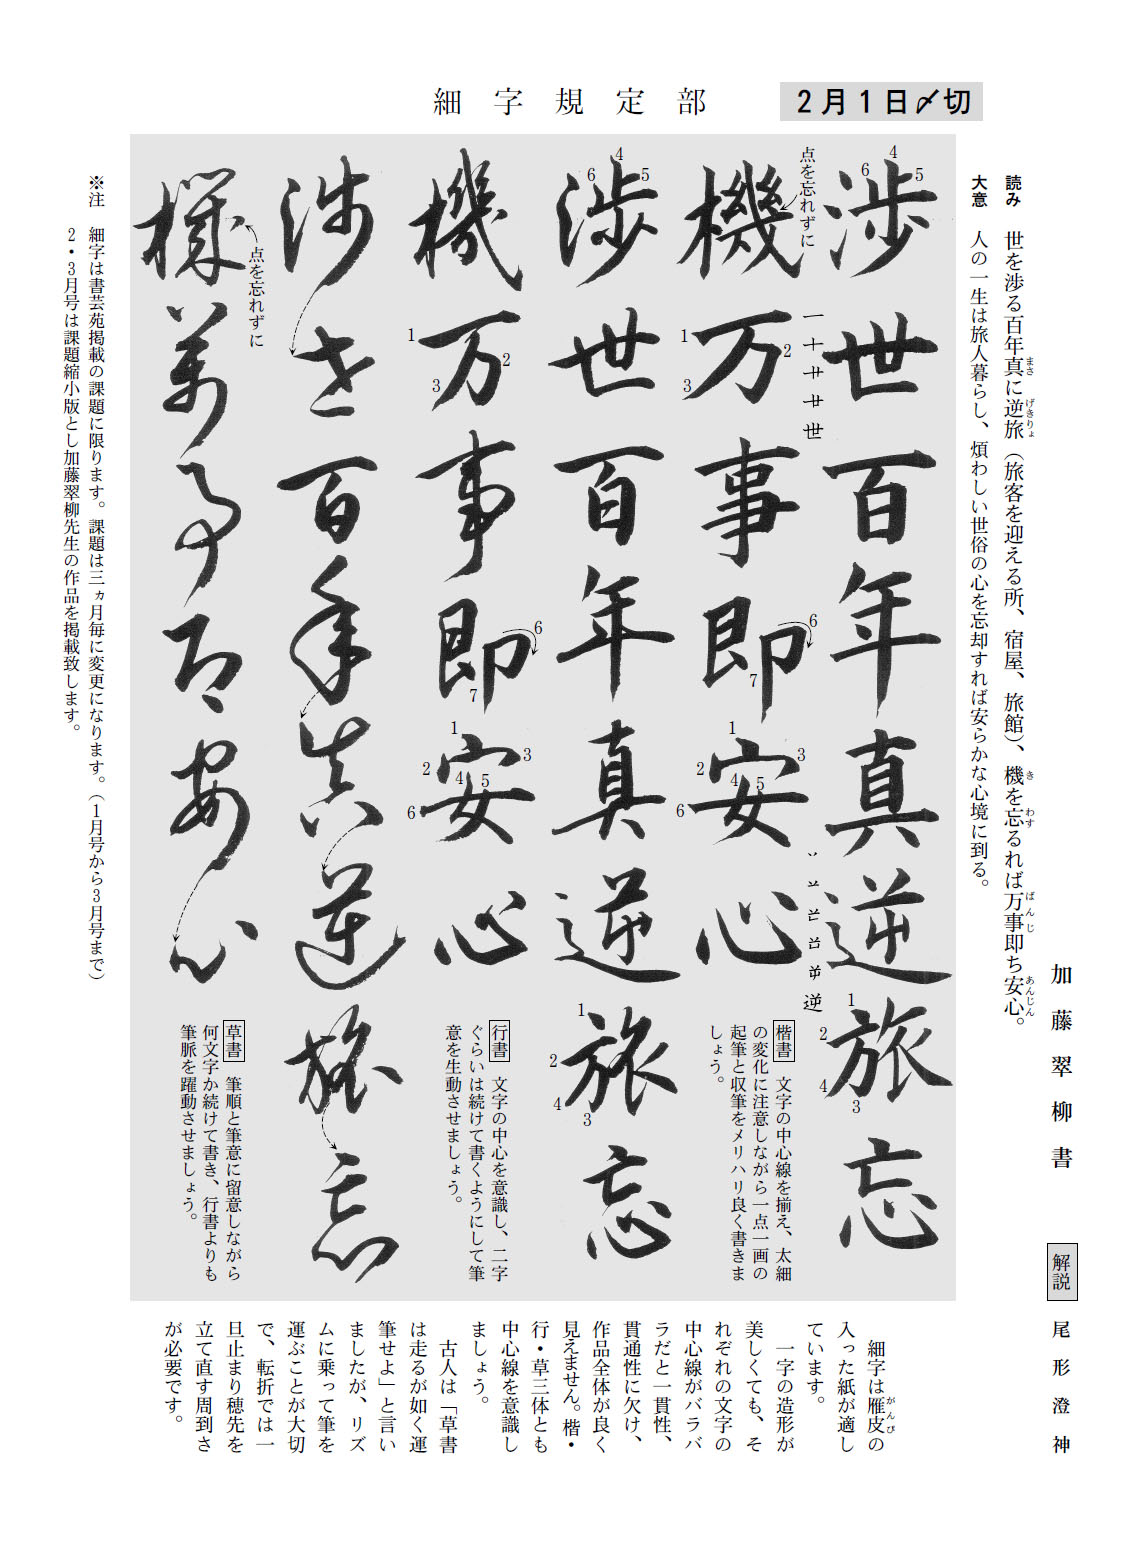 2月1日〆切
細字規定部
加藤翠柳書
解説 尾形澄神
読み 世を渉る百年真に逆旅（旅客を迎える所、宿屋、旅館）、機を忘るれば万事即ち安心。
まさ
げきりょ
き
わす
ばんじ
あんじん
大意 人の一生は旅人暮らし、煩わしい世俗の心を忘却すれば安らかな心境に到る。
渉世百年真逆旅忘
4
5
6
1
2
4
3
一十廿廿世
逆
点を忘れずに
機万事即安心
1
2
3
6
7
1
2
3
4
5
6
楷書 文字の中心線を揃え、太細
の変化に注意しながら一点一画の
起筆と収筆をメリハリ良く書きま
しょう。
渉世百年真逆旅忘
4
5
6
1
2
4
3
機万事即安心
1
2
3
6
7
1
2
3
4
5
6
行書 文字の中心を意識し、二字
ぐらいは続けて書くようにして筆
意を生動させましょう。
渉世百年真逆旅忘
点を忘れずに
機萬事即安心
草書 筆順と筆意に留意しながら
何文字か続けて書き、行書よりも
筆脈を躍動させましょう。
※注 細字は書芸苑掲載の課題に限ります。課題は三ヵ月毎に変更になります。（1月号から3月号まで）
2・3月号は課題縮小版とし加藤翠柳先生の作品を掲載致します。
細字は雁皮の
がんぴ
入った紙が適し
ています。
一字の造形が
美しくても、そ
れぞれの文字の
中心線がバラバ
ラだと一貫性、
貫通性に欠け、
作品全体が良く
見えません。楷・
行・草三体とも
中心線を意識し
ましょう。
古人は「草書
は走るが如く運
筆せよ」と言い
ましたが、リズ
ムに乗って筆を
運ぶことが大切
で、転折では一
旦止まり穂先を
立て直す周到さ
が必要です。